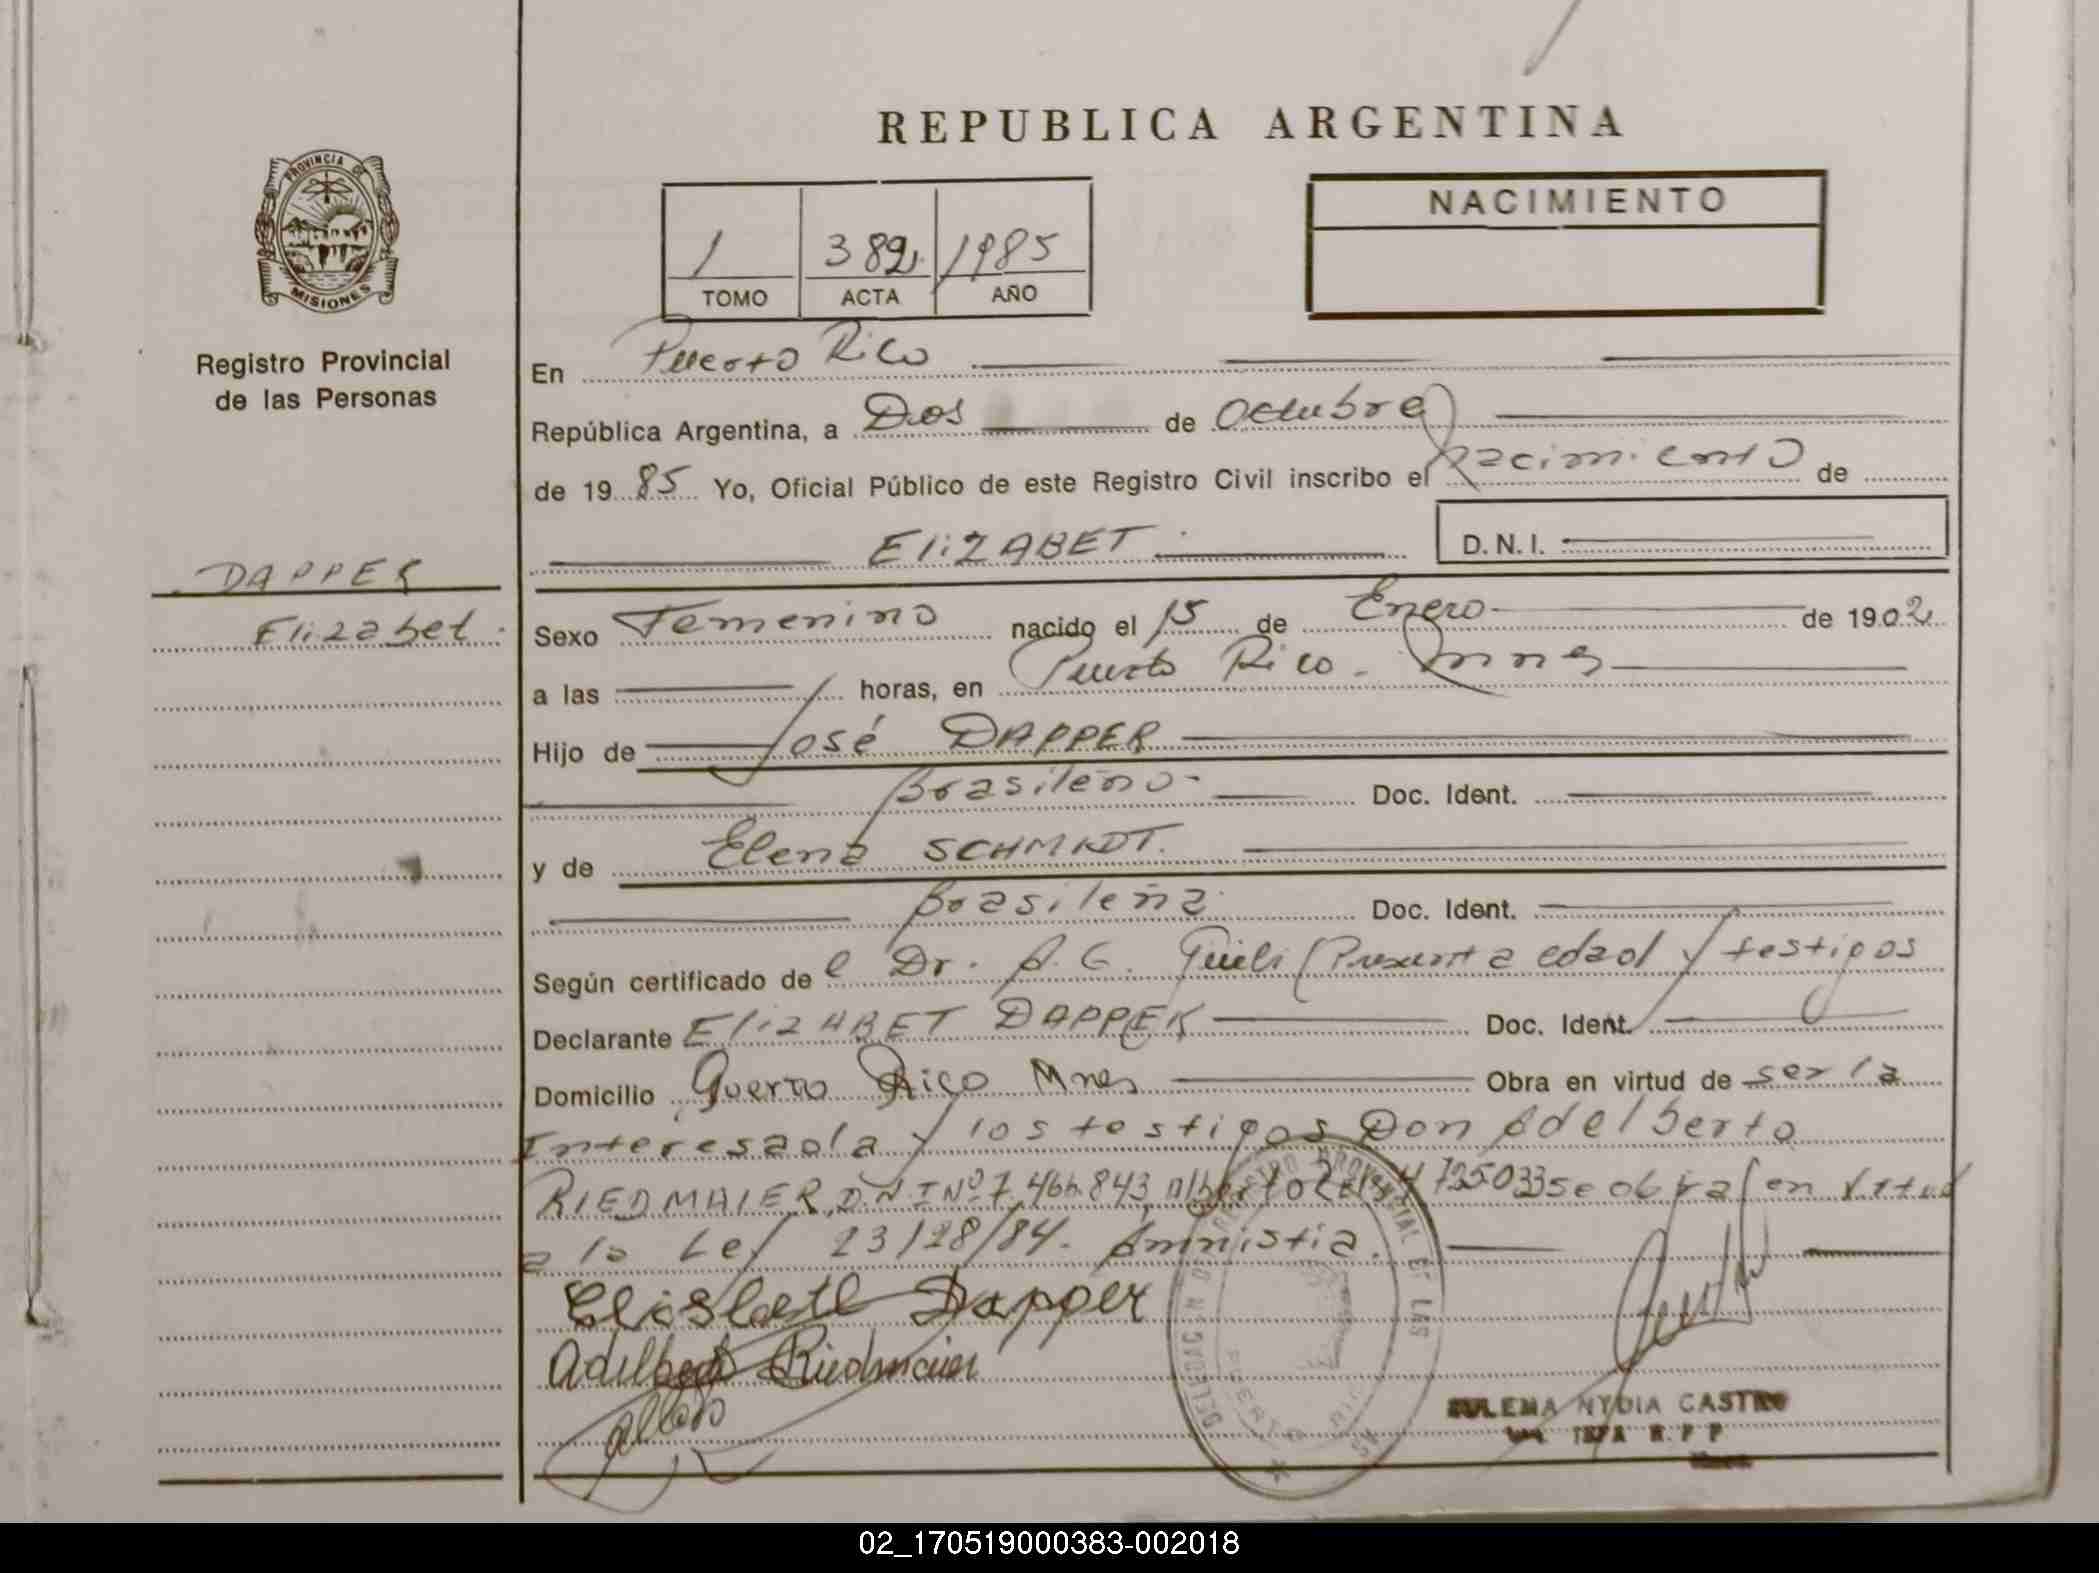 REPUBLICA ARGENTINA
PROVINCIA DE
MISIONES
Registro Provincial
de las Personas
DAPPER
Elizabet.
1 382 1985
TOMO ACTA AÑO
NACIMIENTO
En Puerto Rico
República Argentina, a Dos de Octubre
de 1985 Yo, Oficial Público de este Registro Civil inscribo el nacimiento de
ElizABET. D.N.I.
Sexo Femenino nacido el 15 de Enero de 1902
a las horas, en Puerto Rico. Mnes
Hijo de José DAPPER
Brasileño Doc. Ident.
y de Elena SCHMIDT.
Brasileña Doc. Ident.
Según certificado de l Dr. A. G. (Presunta edad y testigos
Declarante ElizABET DAPPER Doc. Ident.
Domicilio Puerto Rico Mnes Obra en virtud de ser la
Interesada y los testigos Don Adelberto
RIEDMAIER D.N.I Nº 7.466.843, Alberto 4725033 se obra en virtud
a la Ley 23/28/84. Amnistia.
Elisbeth Dapper
Adelberto Riedmaier
DELEGACION REGISTRO PROVINCIAL DE LAS
PUERTO RICO
ZULEMA NYDIA CASTRO
JEFA R. P. P.
02_170519000383-002018